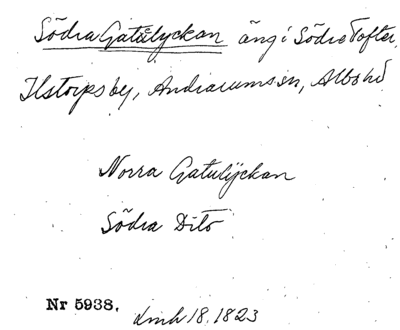 Södra Gatulyckan äng i Södre Tofter,
Ilstorps by, Andrarums sn, Albo hd
Norra Gatulÿckan
Södra Dito
Nr 5938. dmh 18. 1823